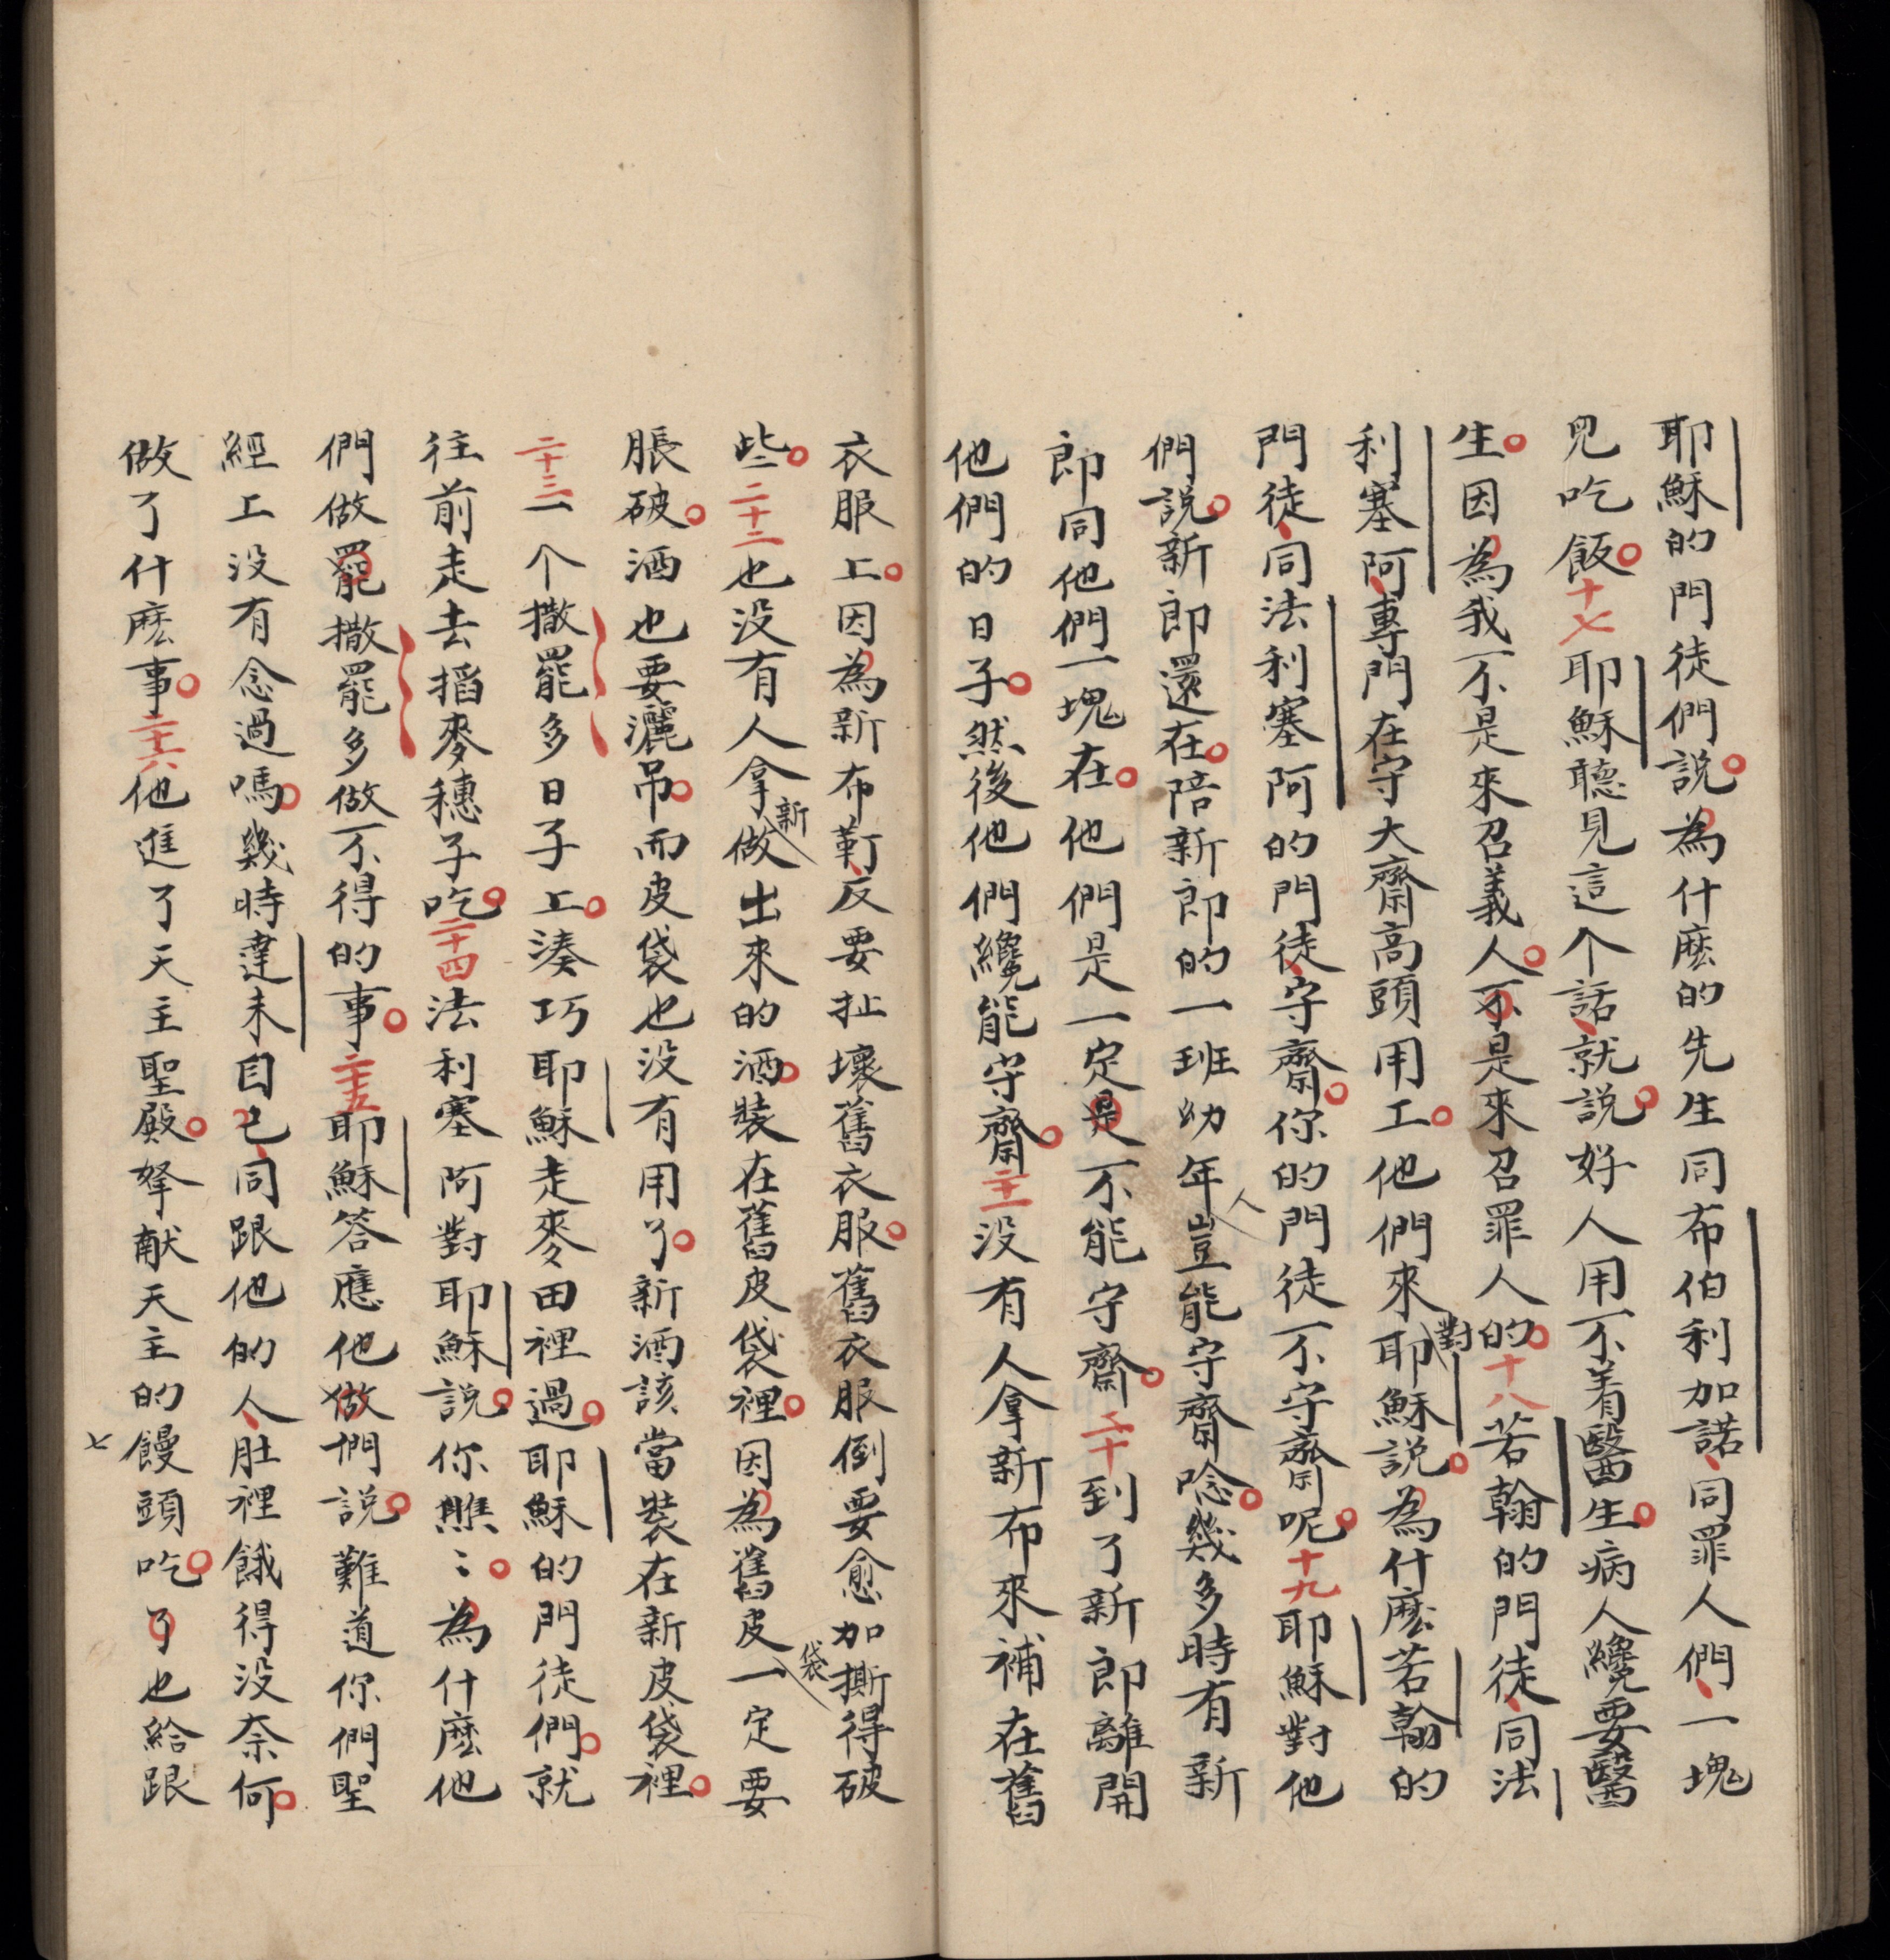 耶穌的門徒們說為什麽的先生同布伯利加諾同罪人們一塊
兒吃飯十七耶穌聽見這个話就說好人用不着醫生病人纔要醫
生因為我不是來召義人不是來召罪人的十八若翰的門徒同法
利塞阿專門在守大齋高頭用工他們來對耶穌説為什麽若翰的
門徒同法利塞阿的門徒守齋你的門徒不守齋呢十九耶穌對他
們說新郎還在陪新郎的一班幼年人豈能守齋唸幾多時有新
郎同他們一塊在他們是一定是不能守齋二十到了新郎離開
他們的日子然後他們纔能守齋二十一没有人拿新布來補在舊
衣服上因為新布靪反要扯壞舊衣服舊衣服倒要愈加撕得破
些二十二也没有人拿新做出來的酒裝在舊皮袋裡因為舊皮袋一定要
脹破酒也要灑吊而皮袋也没有用了新酒該當裝在新皮袋裡
二十三一个撒罷多日子上湊巧耶穌走麥田裡過耶穌的門徒們就
往前走去搯麥穗子吃二十四法利塞阿對耶穌說你瞧〻為什麽他
們做罷撒罷多做不得的事二十五耶穌答應他做們說難道你們聖
經上没有念過嗎幾時達未自己同跟他的人肚裡餓得没奈何
做了什麽事二十六他進了天主聖殿拏献天主的饅頭吃了也給跟
七